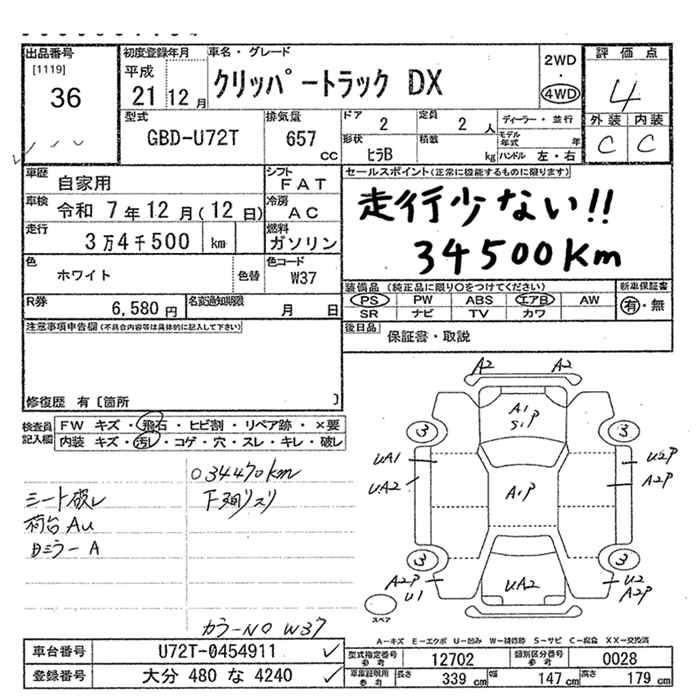 出品番号
[1119]
36
初度登録年月
平成
21 12 月
車名・グレード
クリッパートラック DX
2WD
・
4WD
評価点
4
外装 内装
C C
型式
GBD-U72T
排気量
657
cc
ドア
2
定員
2 人
形状
ﾋﾗB
積載
kg
ディーラー・並行
モデル年式 年
ハンドル 左・右
車歴
自家用
シフト
FAT
車検
令和 7年12月(12日)
冷房
AC
走行
3万4千500 km
燃料
ガソリン
色
ホワイト
色替
色コード
W37
R券
6,580円
名変通知期限
月 日
セールスポイント(正常に機能するものに限ります)
走行少ない!!
34500Km
装備品 (純正品に限り○をつけてください)
PS PW ABS エアB AW
SR ナビ TV カワ
新車保証書
有・無
後日品
保証書・取説
注意事項申告欄(不具合内容等は具体的に記入して下さい)
修復歴 有〔箇所 〕
検査員記入欄
FW キズ・飛石・ヒビ割・リペア跡・×要
内装 キズ・汚レ・コゲ・穴・スレ・キレ・破レ
034470km
シート破レ
下廻リスリ
荷台AU
日ミラーA
カラーNO W37
A2 A2
A1
S1P
3 3
UA1
U2P
UA2
A1P
A2P
3 3
A2P
U1
UA2
U2
A2P
スペア
A-キズ E-エクボ U-凹み W-補修跡 S-サビ C-腐食 XX-交換済
車台番号
U72T-0454911
登録番号
大分 480 な 4240
型式指定番号
参考
12702
類別区分番号
参考
0028
車庫証明用
参考
長さ
339 cm
幅
147 cm
高さ
179 cm